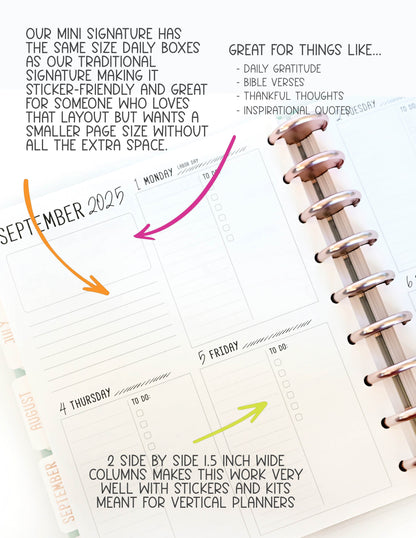 OUR MINI SIGNATURE HAS
THE SAME SIZE DAILY BOXES
AS OUR TRADITIONAL
SIGNATURE MAKING IT
STICKER-FRIENDLY AND GREAT
FOR SOMEONE WHO LOVES
THAT LAYOUT BUT WANTS A
SMALLER PAGE SIZE WITHOUT
ALL THE EXTRA SPACE.
GREAT FOR THINGS LIKE...
- DAILY GRATITUDE
- BIBLE VERSES
- THANKFUL THOUGHTS
- INSPIRATIONAL QUOTES
SEPTEMBER 2025
1 MONDAY LABOR DAY
TO DO:
2 TUESDAY
4 THURSDAY
TO DO:
5 FRIDAY
TO DO:
6
JULY
AUGUST
SEPTEMBER
2 SIDE BY SIDE 1.5 INCH WIDE
COLUMNS MAKES THIS WORK VERY
WELL WITH STICKERS AND KITS
MEANT FOR VERTICAL PLANNERS